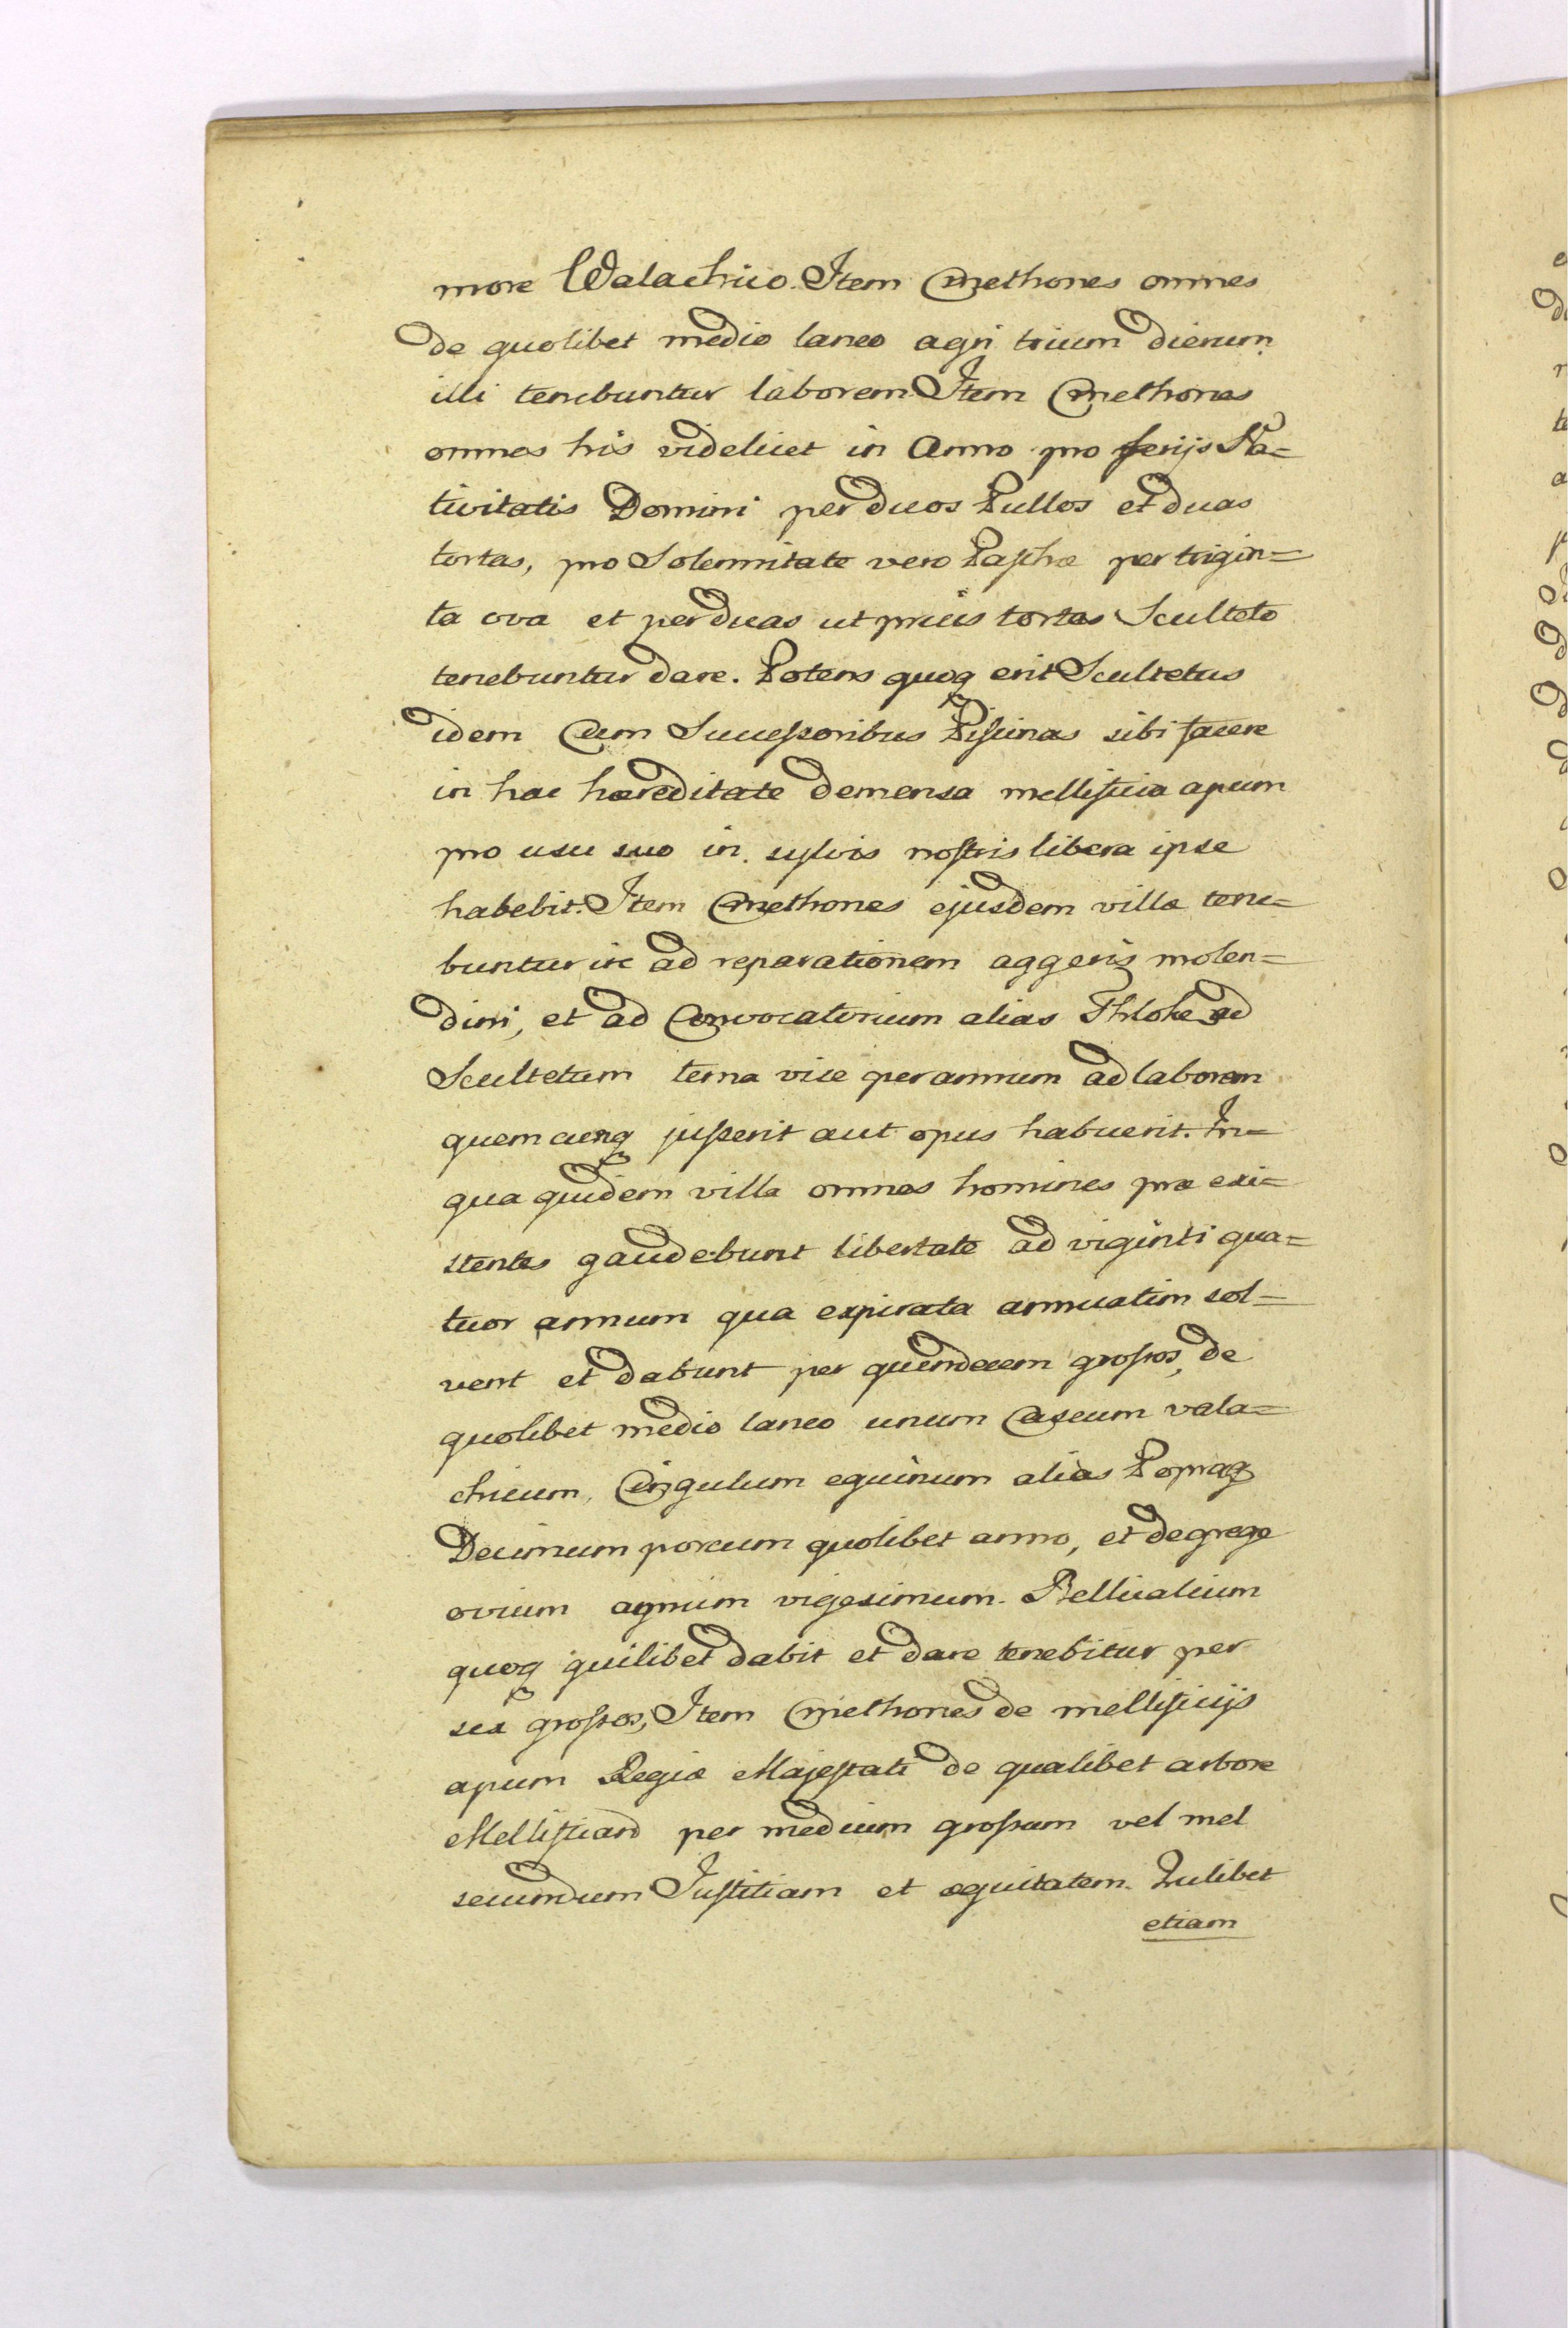 more Walachico. Item Cmethones omnes
de quolibet medio laneo agri trium dierum
illi tenebuntur laborem Item Cmethones
omnes his videlicet in Anno pro ferijs Na=
tivitatis Domini per duos Pullos et duas
tortas, pro Solennitate vero Paschæ per trigin=
ta ova et per duas ut prius tortas Sculteto
tenebuntur dare. Potens quoq erit Scultetus
idem Cum Successoribus Piscinas sibi facere
in hac hæreditate demensa mellificia apum
pro usu suo in sylvis nostris libera ipse
habebit. Item Cmethones ejusdem villæ tene=
buntur ire ad reparationem aggeris molen=
dini, et ad Convocatorium alias Thloke ad
Scultetum terna vice per annum ad laborem
quemcunq jusserit aut opus habuerit. In=
qua quidem villa omnes homines præ exi=
stentes gaudebunt libertate ad viginti qua=
tuor annum qua expirata annuatim sol=
vent et dabunt per quindecem grossos, de
quolibet medio laneo unum Caseum vala=
chicum, Cingulum equinum alias Poprag
Decimum porcum quolibet anno, et de grege
ovium agnum vigesimum. Bellicalium
quoq quilibet dabit et dare tenebitur per
sex grossos, Item Cmethones de mellificijs
apum Regiæ Majestati de qualibet arbore
per medium grossum vel mel
secundum Justitiam et æquitatem. Quilibet
etiam